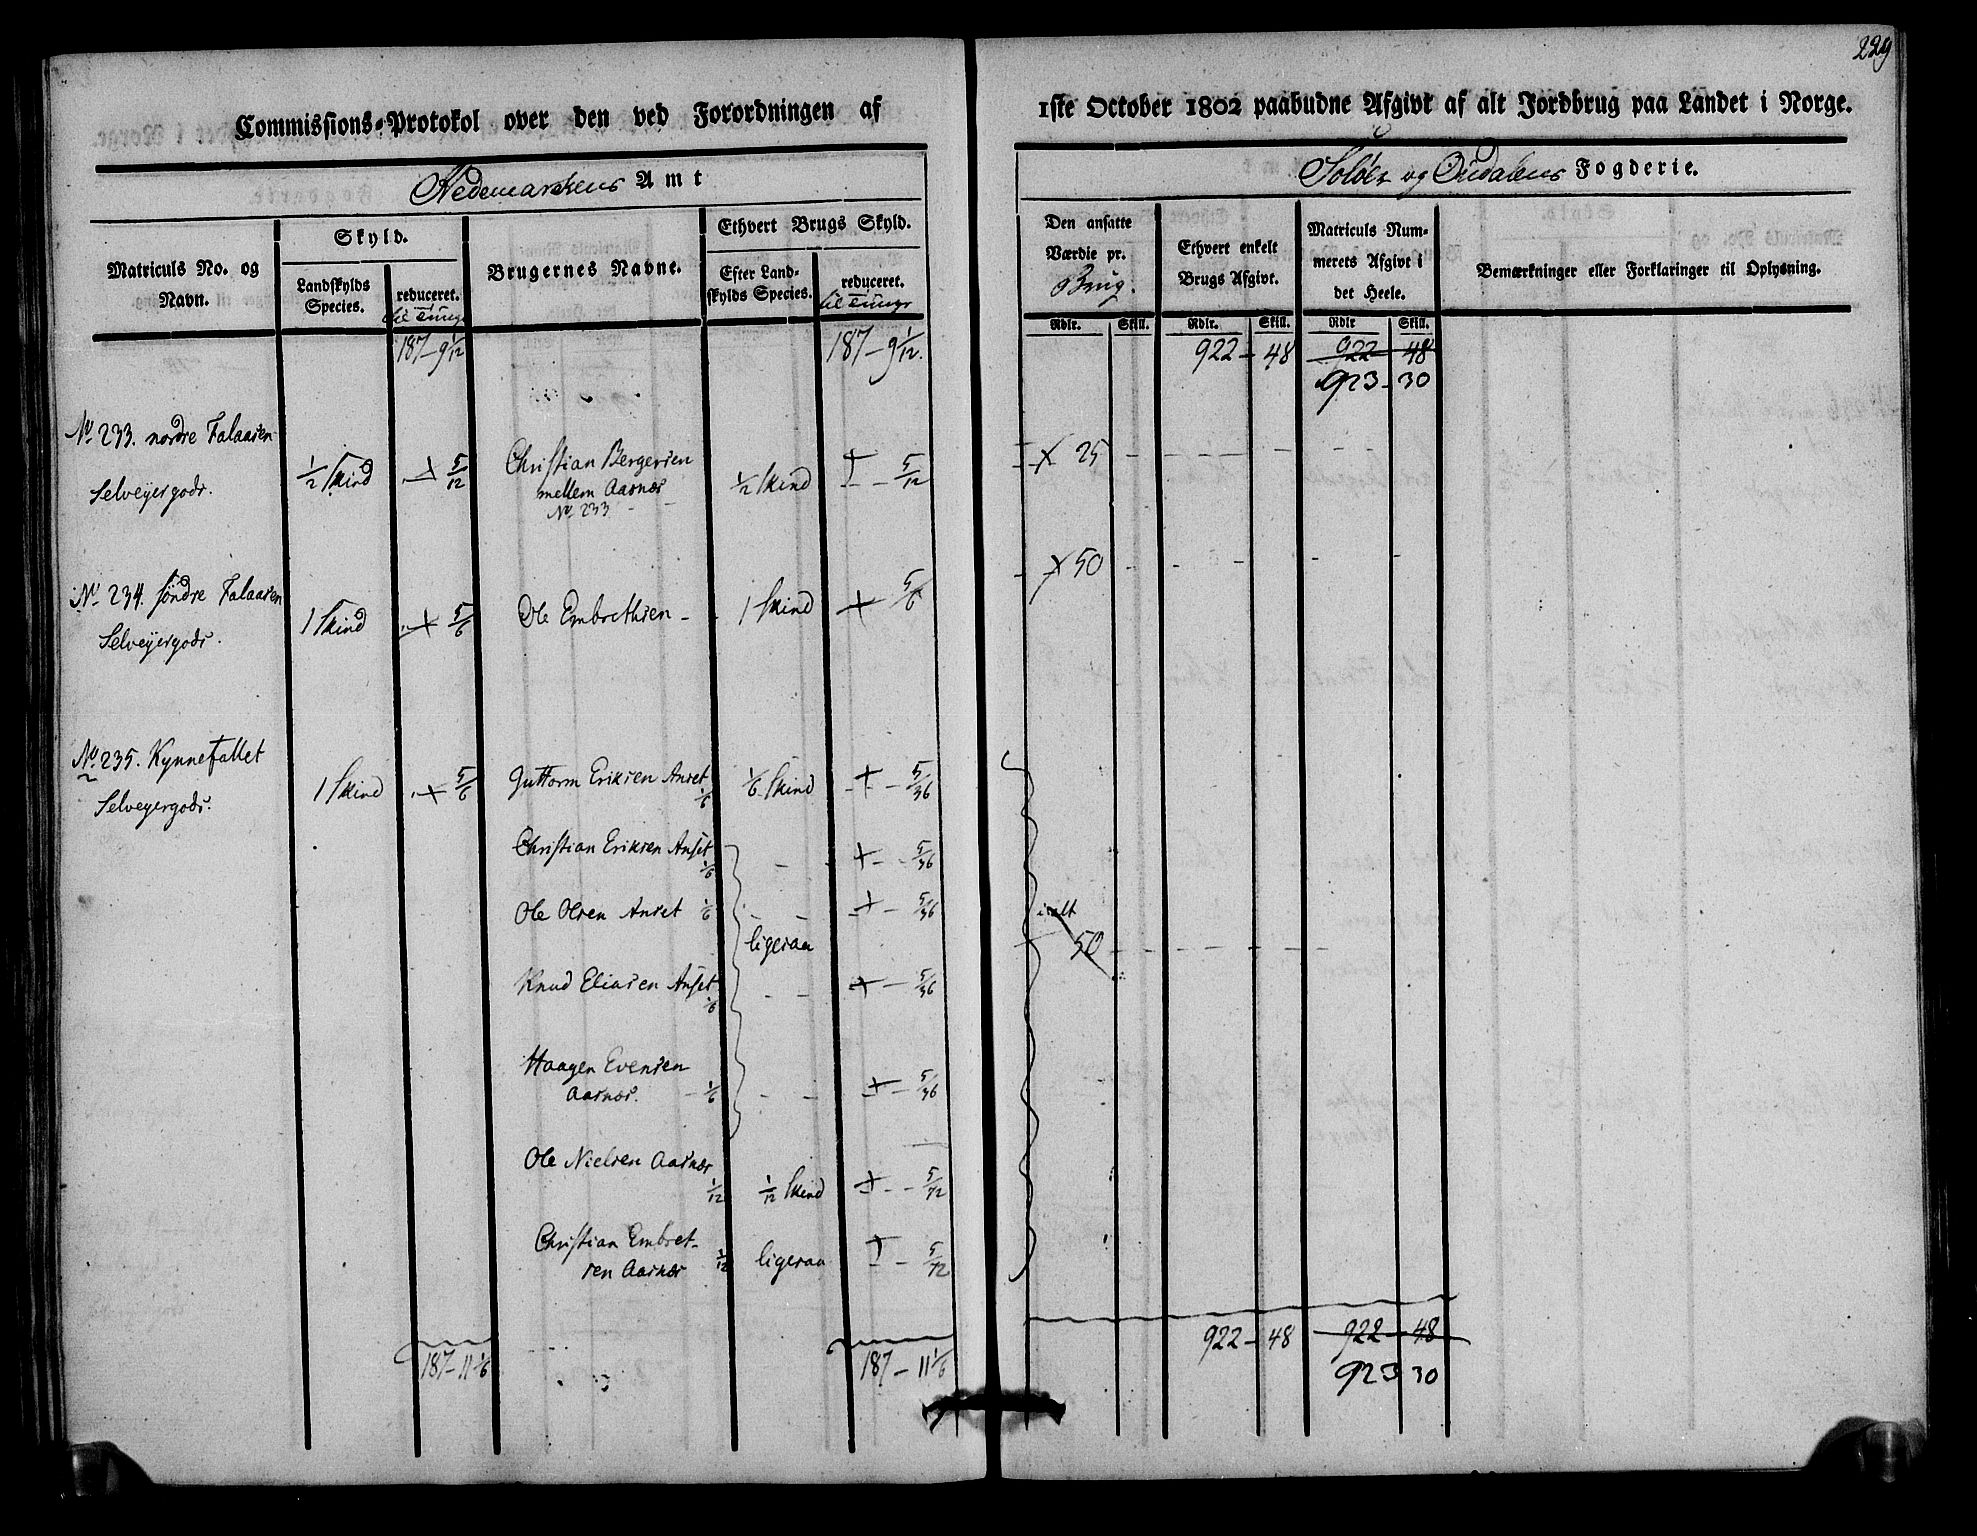 229
Commissions-Protokol over den ved Forordningen af 1ste October 1802 paabudne Afgivt af alt Jordbrug paa Landet i Norge.
Hedemarckens Amt
Soløer og Oudalens Fogderie.
Matriculs No. og Navn.
Skyld.
Landskylds Species.
reduceret.
til Tunge
Brugernes Navne.
Ethvert Brugs Skyld.
Efter Landskylds Species.
reduceret.
til Tunge
Den ansatte Værdie pr. Brug.
Ethvert enkelt Brugs Afgivt.
Matriculs Nummerets Afgivt i det Heele.
Bemærkninger eller Forklaringer til Oplysning.
Rdlr. Skill. Rdlr. Skill. Rdlr Skill.
187 - 9 1/12 187 - 9 1/12. 922 - 48 922 - 48
923 - 30
No 233. nordre Falaasen
Selveyergods. 1/2 Skind 5/12 Christian Bergersen 1/2 Skind 5/12 25
mellem Aasnæs
No 233
No 234. søndre Falaasen
Selveyergods. 1 Skind 5/6 Ole Embrethsen 1 Skind 5/6 50
No 235. Kynnefallet
Selveyergods. 1 Skind 5/6 Guttorm Eriksen Anset 1/6 1/6 Skind 5/36
Christian Eriksen Anset 1/6 - 5/36
Ole Olsen Anset 1/6 - - 5/36 i alt
ligesaa 50
Knud Eliasen Anset 1/6 - - 5/36
Haagen Evensen
Aasnæs. - 1/6 - - 5/36
Ole Nielsen Aasnæs
1/12 1/12 Skind 5/72
Christian Embret-
sen Aasnæs 1/12 ligesaa 5/72
187 - 11 1/6 187 - 11 1/6 922 - 48 922 - 48
923 30